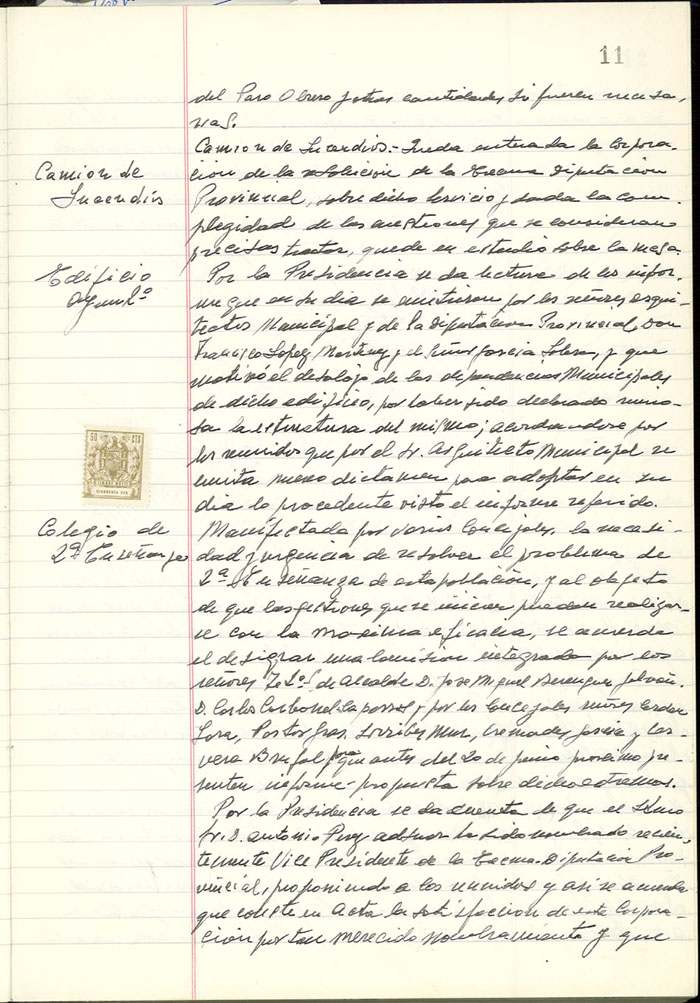 11
del Paro Obrero y otras cantidades si fueren necesa-
rias.
Camion de Incendios
Camion de Incendios.- Queda enterada la Corpora-
cion de la resolucion de la Excma Diputación
Provincial, sobre dicho Servicio y dada la com-
plegidad de las cuestiones que se consideran
precisas tratar, quede en estudio sobre la mesa.
Edificio
Ayuntº
Por la Presidencia se da lectura de los infor-
me que en su dia se emitieron por los señores arqui-
tectos Municipal y de la Diputación Provincial, Don
Francisco Lopez Martinez y el Señor Garcia y que
motivó el desalojo de las dependencias Municipales
de dicho edificio, por haber sido declarado ruino-
sa la estructura del mismo; acordandose por
los reunidos que por el Sr. Arquitecto Municipal se
emita nuevo dictamen para adoptar en su
dia lo procedente visto el informe referido.
50 CTS
Colegio de
2ª Enseñanza
Manifestada por varios Concejales, la necesi-
dad y urgencia de resolver el problema de
2ª Enseñanza de esta población, y al objeto
de que las gestiones que se inicien puedan realizar-
se con la maxima eficacia, se acuerda
el designar una Comision integrada por los
señores Tes de Alcalde D. Jose Miguel Berenguer
D. Carlos Carbonell y por los Concejales
Lora, Pastor Mur, Cremades Garcia y
vera para que antes del 20 de junio proximo pre-
senten informe-propuesta sobre dicho extremos.
Por la Presidencia se da cuenta de que el Ilmo
Sr. D. Antonio Perez ha sido nombrado recien-
temente Vice Presidente de la Excma. Diputacion Pro-
vincial, proponiendo a los reunidos y asi se acuerda
que conste en Acta la satisfaccion de este Corpora-
ción por tan merecido nombramiento y que